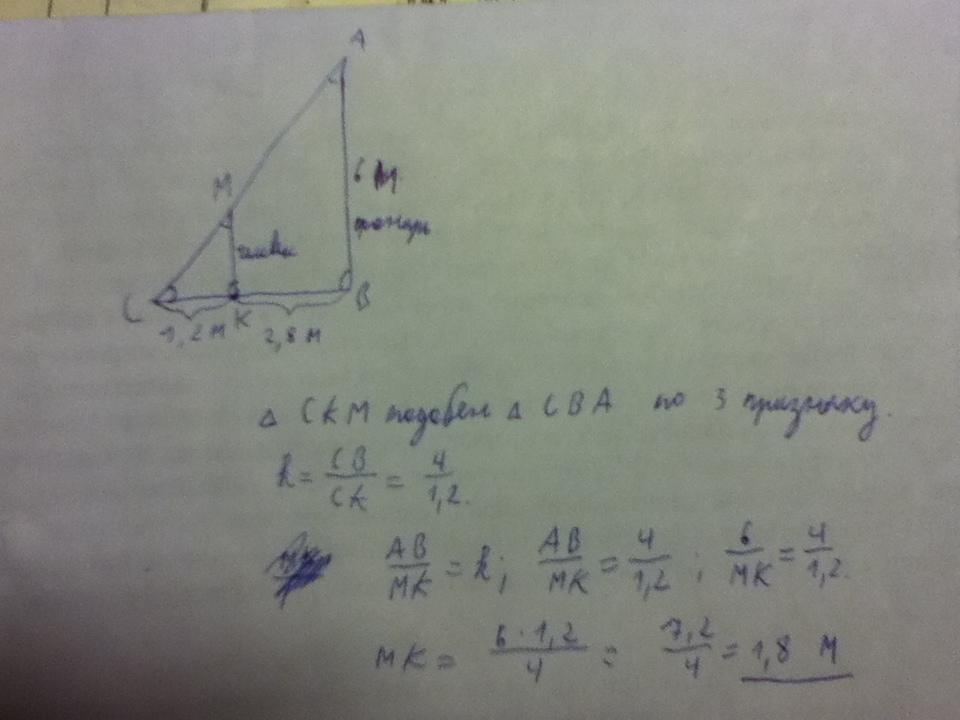 A
M
6 м.
фонарь
C
K
B
1,2 м
2,8 м
△ CKM подобен △ CBA по 3 признаку.
k = CB/CK = 4/1,2.
AB/MK = k; AB/MK = 4/1,2; 6/MK = 4/1,2.
MK = 6·1,2/4 = 7,2/4 = 1,8 м